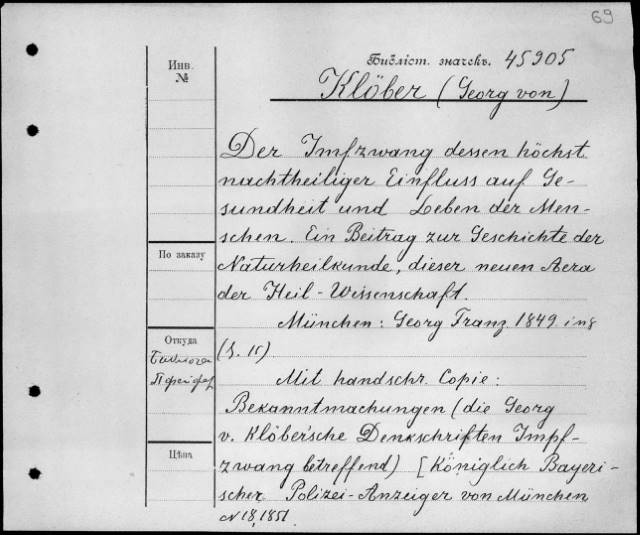 69
Инв.
№
Библіот. значекъ. 45905
Klöber (Georg von)
Der Impfzwang dessen höchst
nachtheiliger Einfluss auf Ge-
sundheit und Leben der Men-
schen. Ein Beitrag zur Geschichte der
Naturheilkunde, dieser neuen Aera
der Heil-Wissenschaft.
München: Georg Franz 1849. in 8
По заказу
Откуда
Mit handschr. Copie:
Bekanntmachungen (die Georg
v. Klöber'sche Denkschriften Impf-
zwang betreffend) [Königlich Bayeri-
scher Polizei-Anzeiger von München
N 18, 1851.
Цѣна